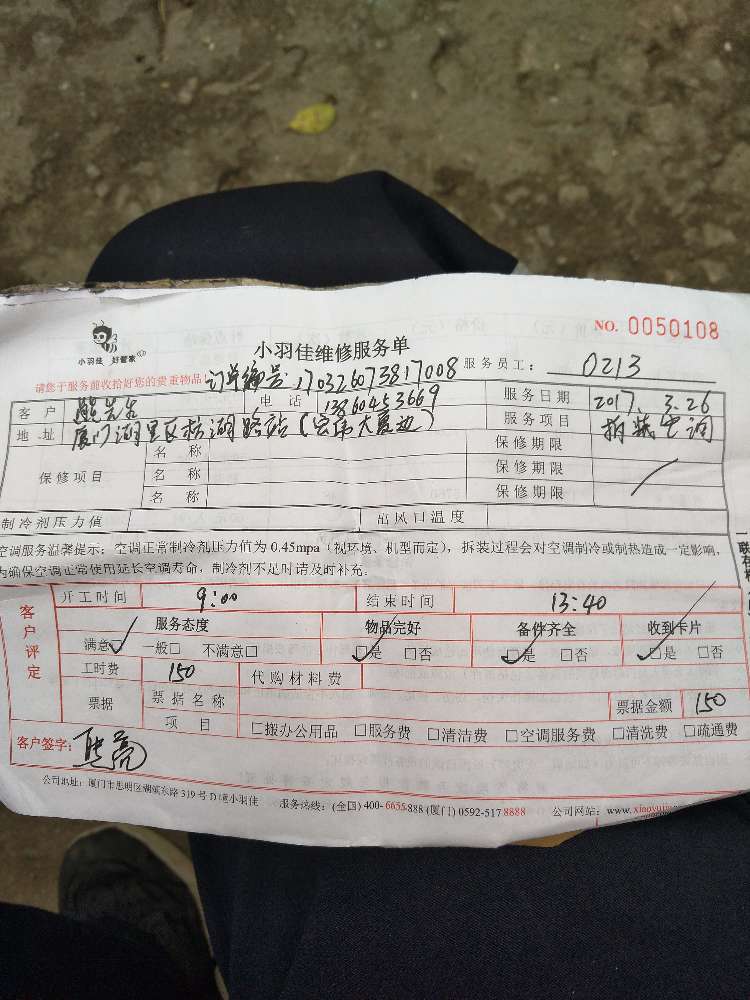 NO. 0050108
小羽佳 好管家
小羽佳维修服务单
请您于服务前收拾好您的贵重物品! 订单编号:17032607381​7008 服务员工: 0213
客户 熊先生 电话 13860453669 服务日期 2017.3.26
地址 厦门湖里区枋湖路站(宏伟大厦边) 服务项目 拆装空调
保修项目 名称 保修期限
名称 保修期限
名称 保修期限
制冷剂压力值 出风口温度
空调服务温馨提示: 空调正常制冷剂压力值为 0.45mpa (视环境、机型而定), 拆装过程会对空调制冷或制热造成一定影响,
为确保空调正常使用延长空调寿命, 制冷剂不足时请及时补充。
客户评定 开工时间 9:00 结束时间 13:40
服务态度 物品完好 备件齐全 收到卡片
满意☑ 一般□ 不满意□ ☑是 □否 ☑是 □否 ☑是 □否
工时费 150 代购材料费
票据 票据名称 票据金额 150
项目 □搬办公用品 □服务费 □清洁费 □空调服务费 □清洗费 □疏通费
客户签字: 熊亮
公司地址: 厦门市思明区湖滨东路 319 号 D 幢小羽佳 服务热线: (全国) 400-6655-888 (厦门) 0592-517 8888 公司网站: www.xiaoyu